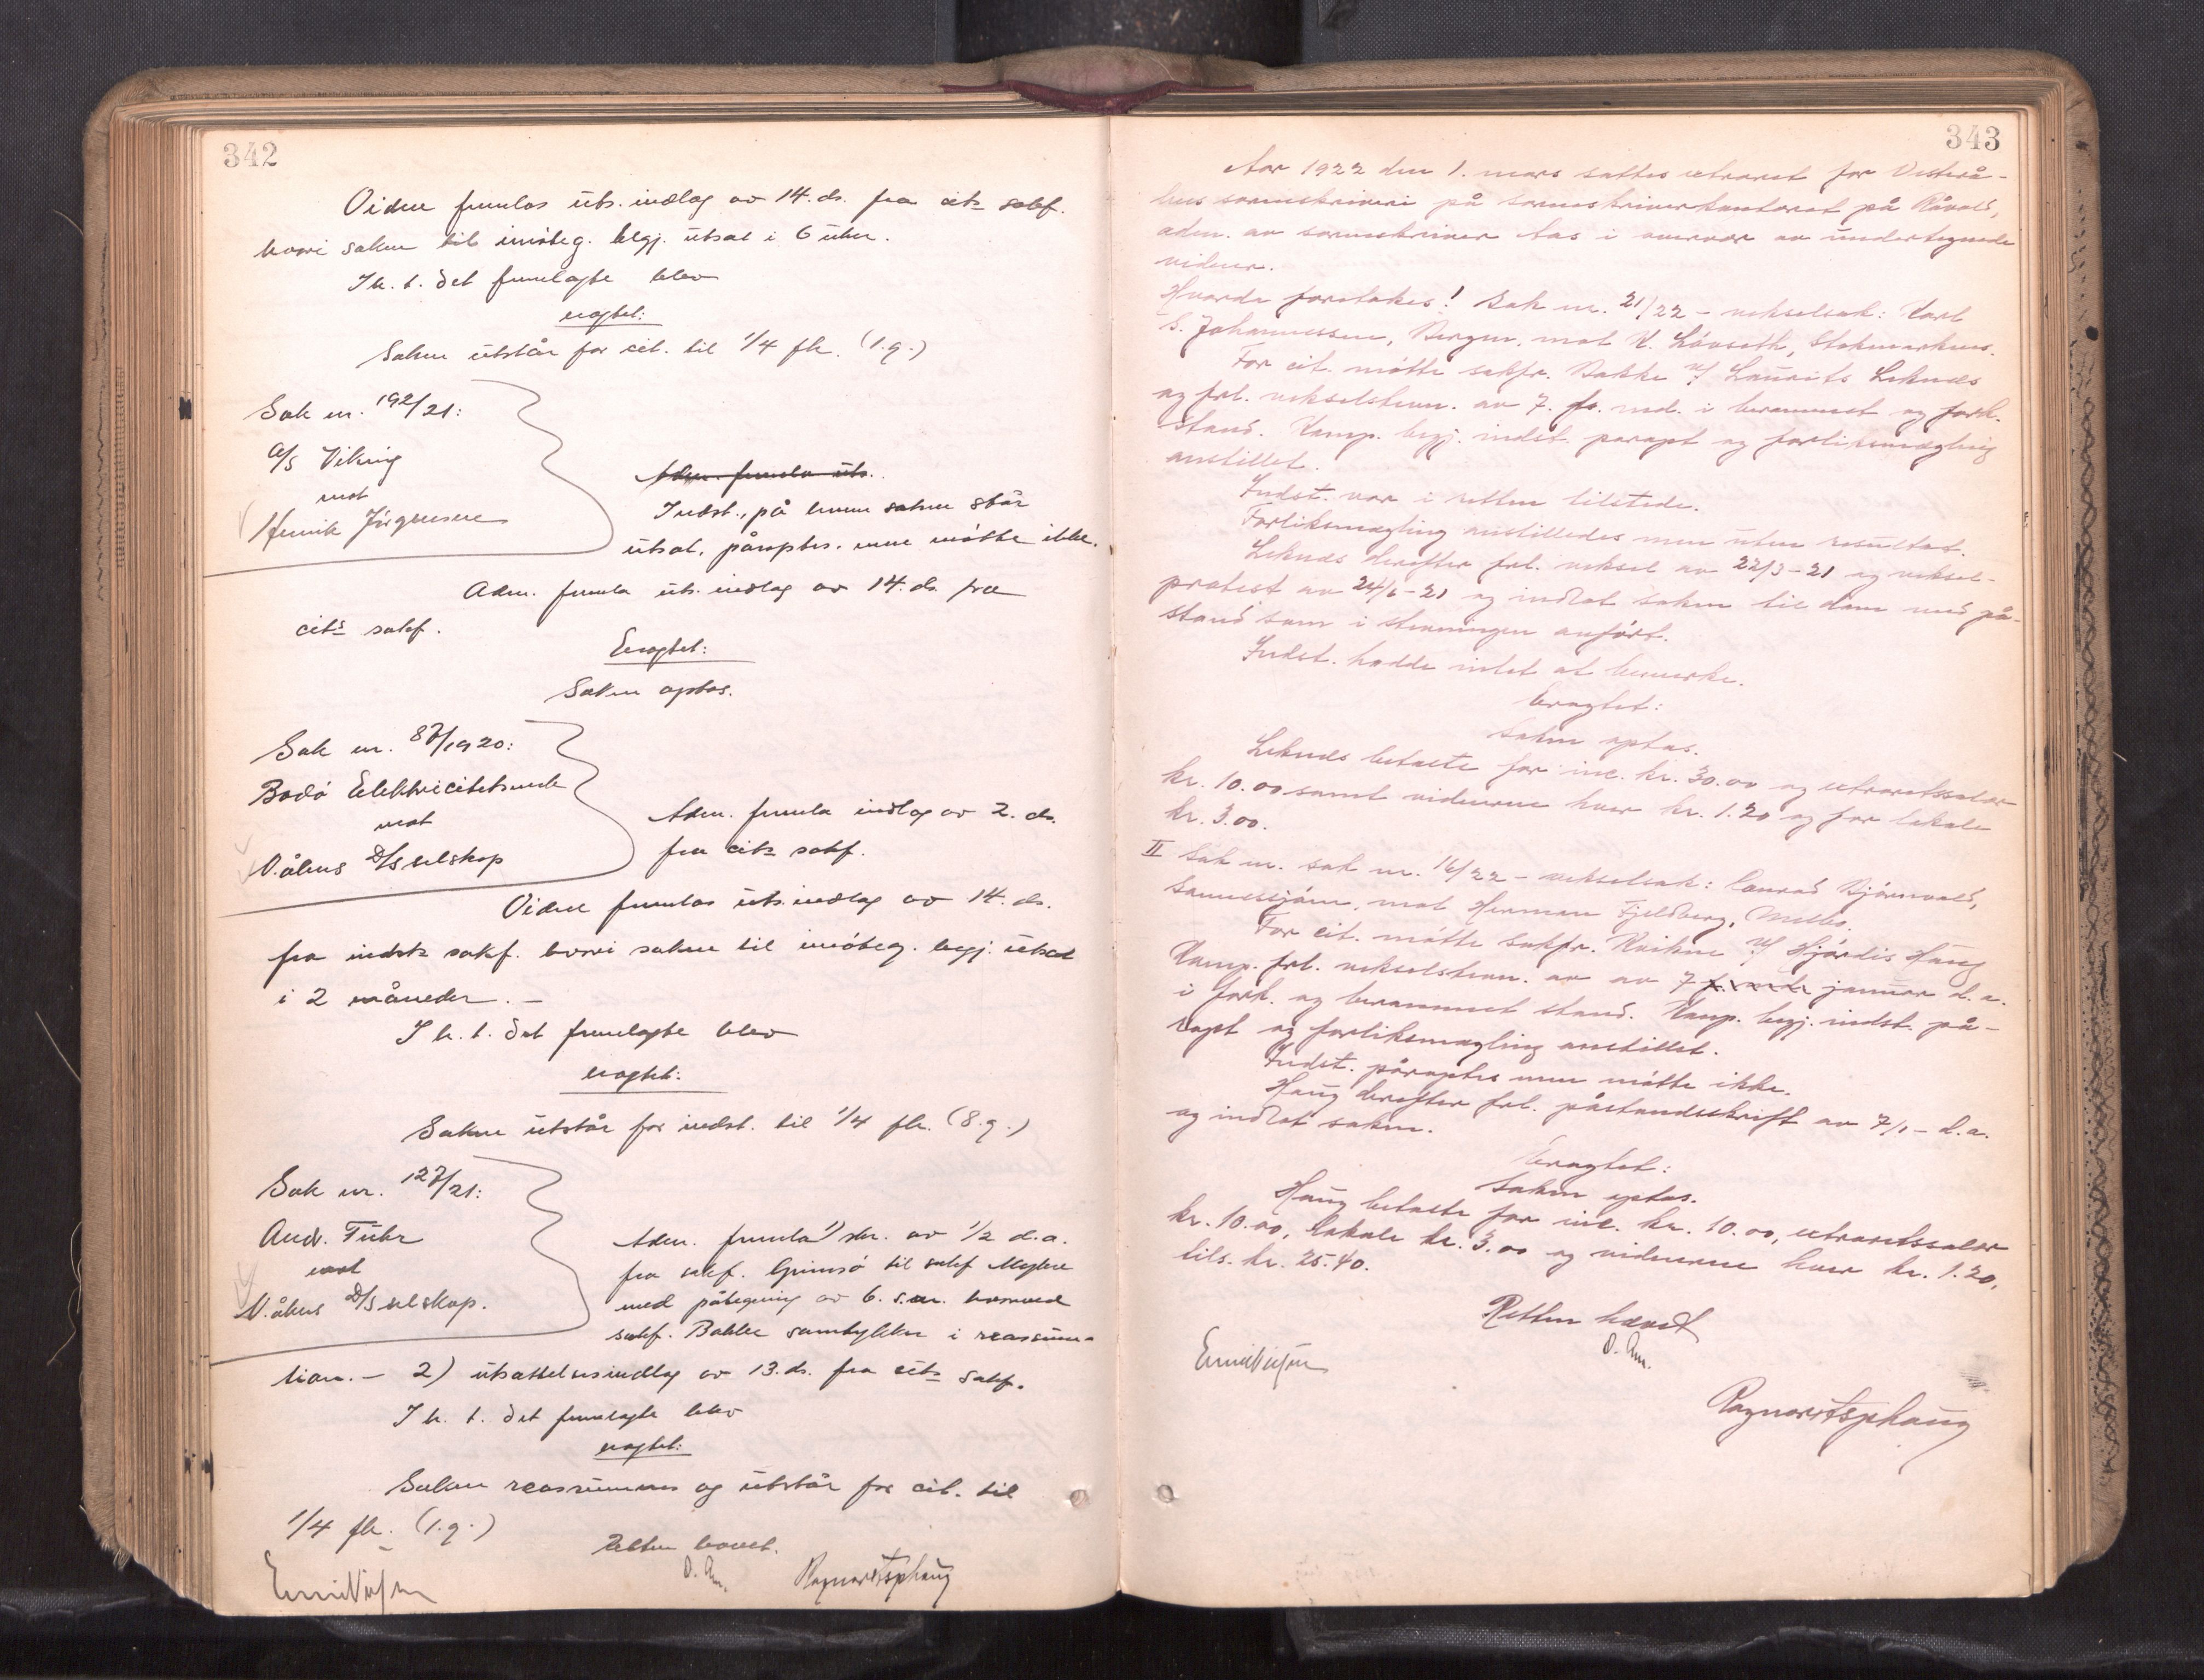 342
Viden fremlas uts. indlæg av 14. ds. fra cits sakf.
hvori saken til imøteg. begj. utsat i 6 uker.
I h. t. det fremlagte blev
eragtet:
Saken utstår for cit. til 1/4 fk. (1. g.)
Sak nr. 192/21:
A/S Viking
mot
Henrik Jörgensen
Adm. fremla uts.
Indst., på hvem saken står
utsat, påroptes. men møtte ikke.
Adm. fremla uts. indlæg av 14. ds. fra
cits sakf.
Eragtet:
Saken optas.
Sak nr. 87/1920:
Bodø Elektricitetsverk
mot
V.ålens D/S selskap
Adm. fremla indlæg av 2. ds.
fra cits sakf.
Viden fremlas uts. indlæg av 14. ds.
fra indsts sakf. hvori saken til imøteg. begj. utsat
i 2 måneder. –
I h. t. det fremlagte blev
eragtet:
Saken utstår for indst. til 1/4 fk. (8. g.)
Sak nr. 127/21:
And. Führ
mot
V.ålens D/S selskap.
Adm. fremla 1) skr. av 1/2 d.a.
fra sakf. Grimsø til sakf
med påtegning av 6. s.m. hvorved
sakf. Bakke samtykker i reassum-
tion. – 2) utsættelsesindlæg av 13. ds. fra cits sakf.
I h. t. det fremlagte blev
eragtet:
Saken reassumeres og utstår for cit. til
1/4 fk. (1. g.)
Retten hævet.
343
Aar 1922 den 1. mars sattes extraret for Vesterå-
lens sorenskriveri på sorenskriverkontoret på
adm. av sorenskriver Aas i overvær av undertegnede
vidner.
Hvorda foretokes: Sak nr. 21/22 – vekselsak: Karl
S. Johannessen, Bergen, mot K. Lövseth, Stokmarknes.
For cit. møtte sakfr. Bakke v/ Laurits Leknes
og frl. vekselstevn. av 7. f. md. i berammet og fork.
stand. Komp. begj. indst. paaropt og forliksmægling
anstillet.
Indst. var i retten tilstede.
Forliksmægling anstilledes men uten resultat.
Leknes derefter frl. veksel av 22/3–21 og veksel-
protest av 24/6–21 og indlot saken til dom med på-
stand som i stevningen anført.
Indst. hadde intet at bemerke.
Eragtet:
Saken optas.
Leknes betalte for inc. kr. 30.00 og extraretssalær
kr. 10.00 samt vidnerne hver kr. 1.20 og for lokale
kr. 3.00.
II Sak nr. sak nr. 16/22 – vekselsak: Conrad Björnvold,
Sannessjöen, mot Herman Fjeldberg, Melbo.
For cit. møtte sakfr. Kvikne v/ Hjördis Haug
Komp. frl. vekselstevn. av av 7 f. md. januar d. a.
i fork. og berammet stand. Komp. begj. indst. på-
ropt og forliksmægling anstillet.
Indst. påroptes men møtte ikke.
Haug derefter frl. påstandsskrift av 7/1 – d.a.
og indlot saken.
Eragtet:
Saken optas.
Haug betalte for inc. kr. 10.00, extraretssalær
kr. 10.00, lokale kr. 3.00 og vidnerne hver kr. 1.20,
tils. kr. 25.40.
Retten hævet